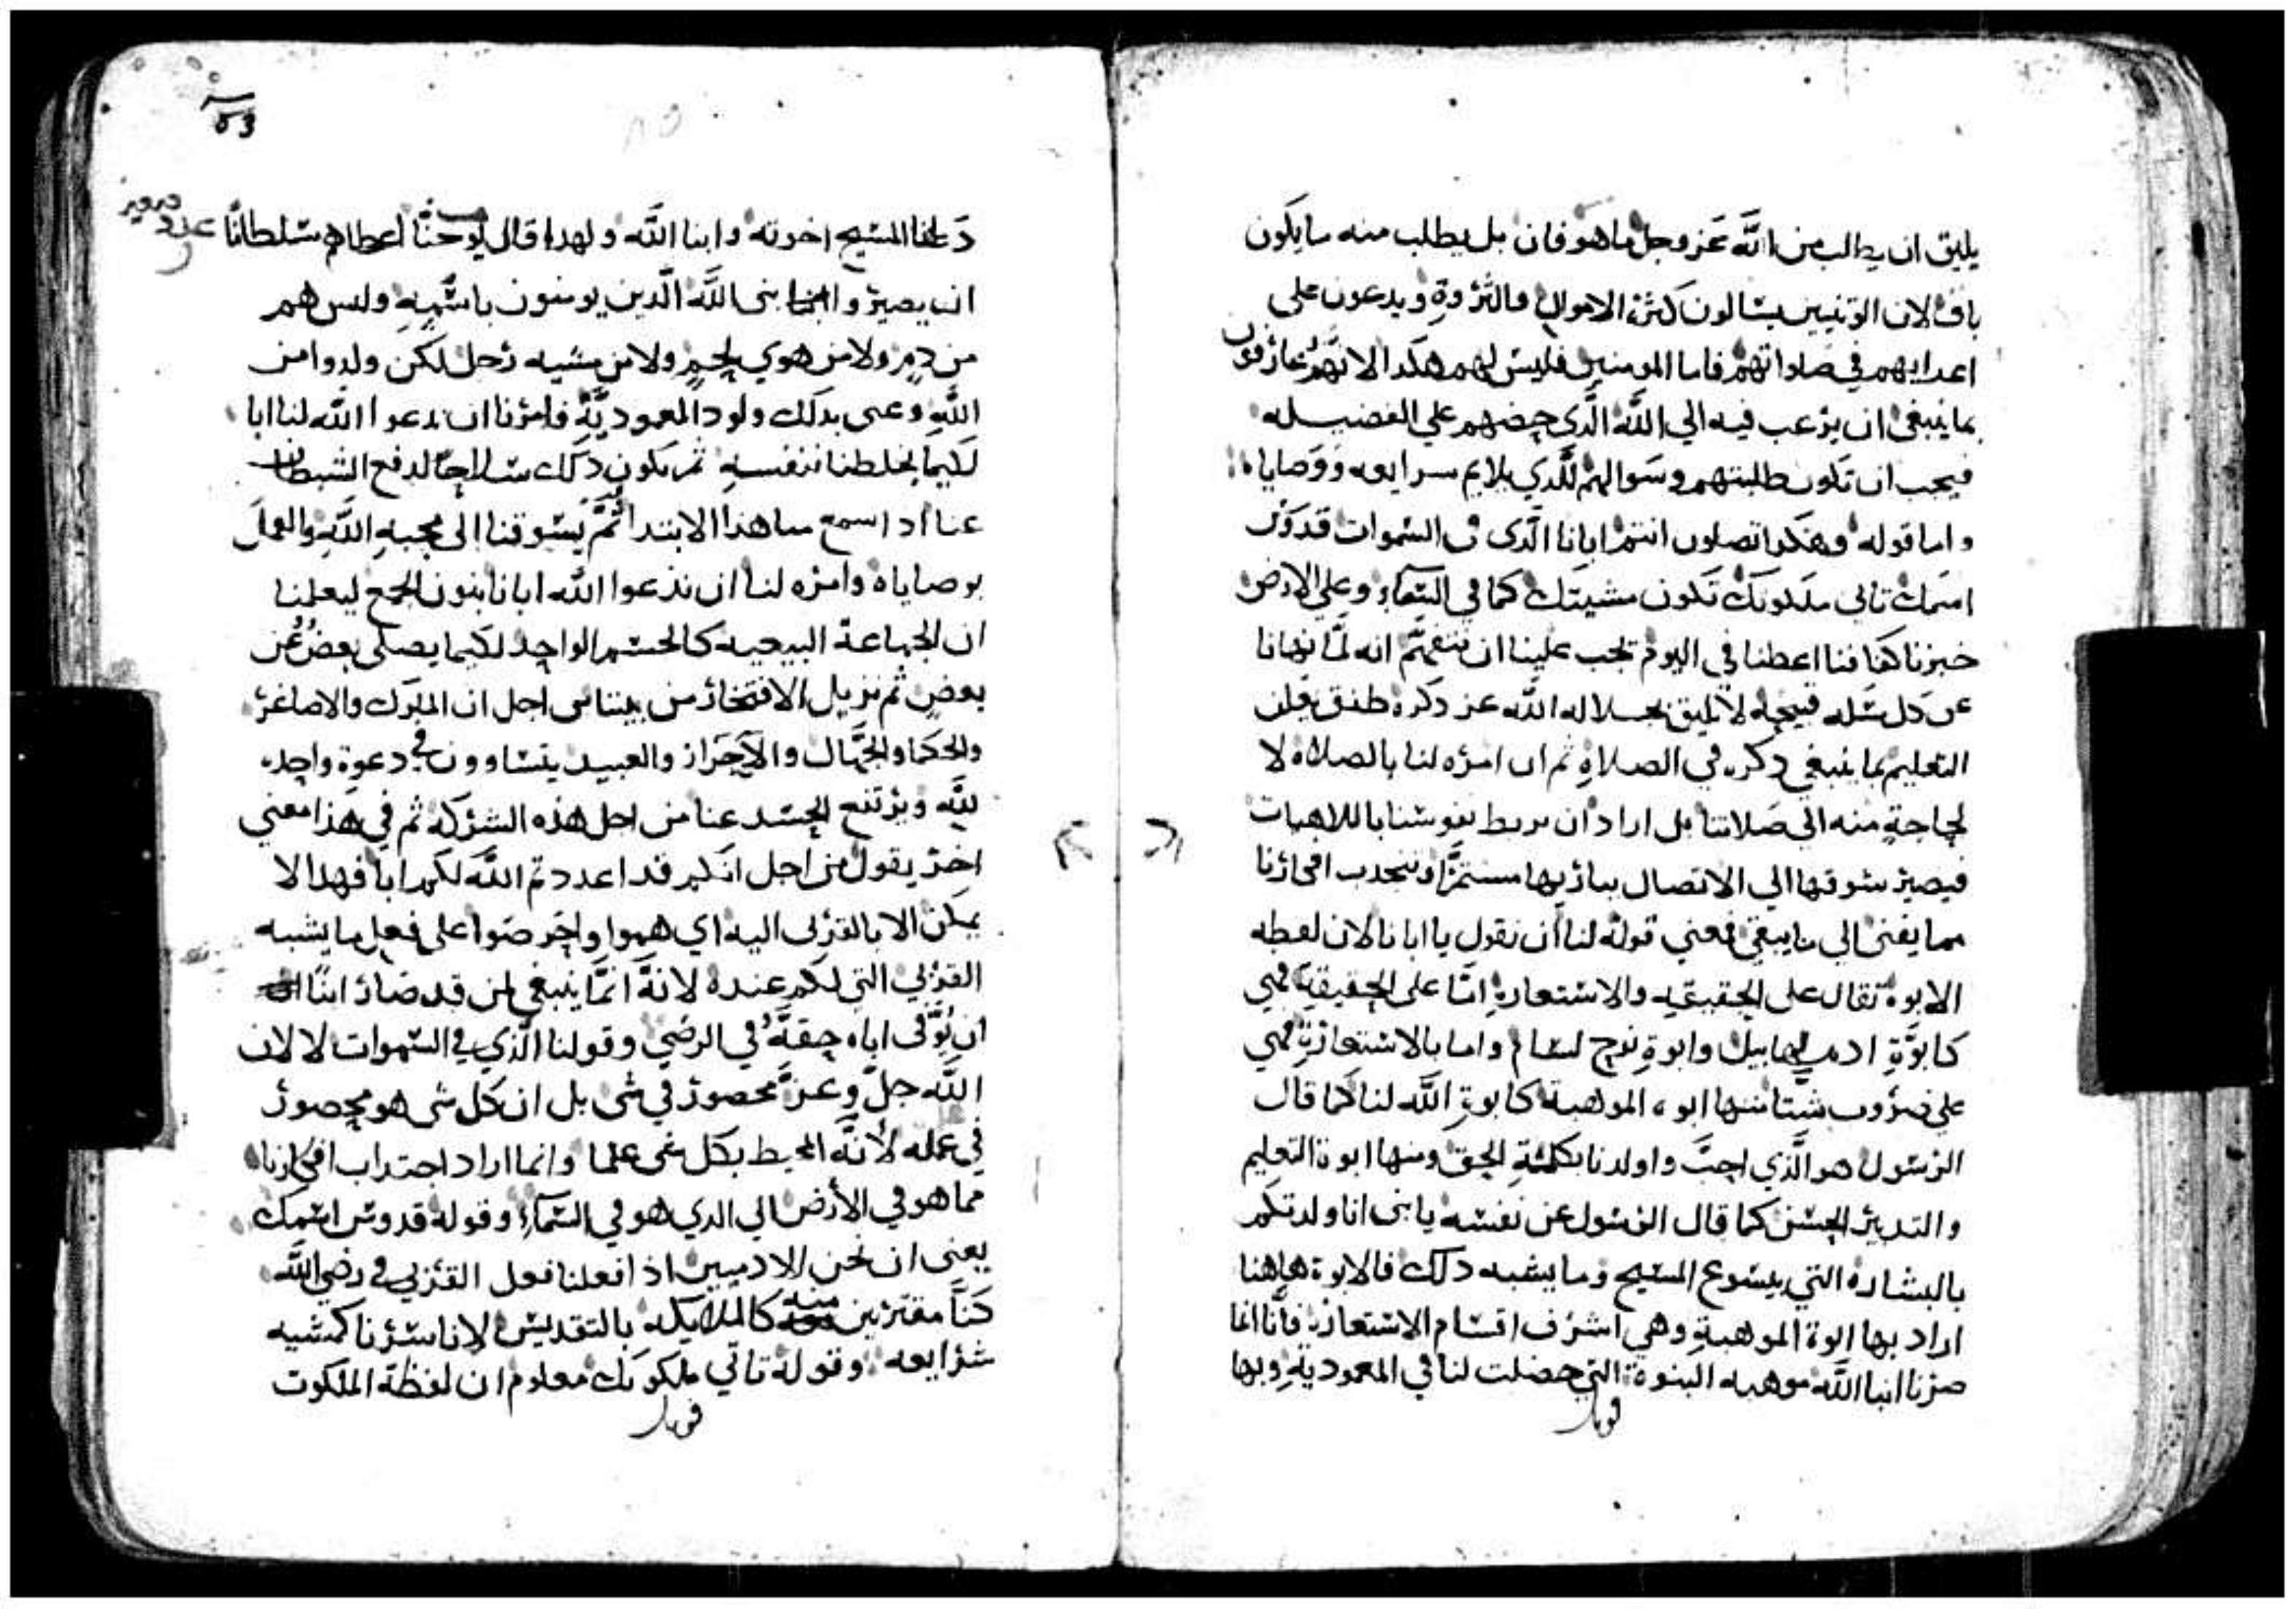 يليق ان يطالب من الله عز وجل ما هو فان بل يطلب منه ما يكون
باق لان الوتنيين يسالون كثرة الاموال والثروة ويدعون على
اعدايهم في صلواتهم فاما المومنين فليس لهم هكدا لانهم عارفون
بما ينبغي ان يرغب فيه الي الله الدي حضهم علي الفضيله
فيجب ان تكون طلبتهم وسوالهم للدي يلايم سرايعه ووصاياه
واما قوله وهكدا تصلون انتم ابانا الدى فى السموات قدوس
اسمك تاتي ملكوتك تكون مشيتك كما في السماء وعلي الارض
خبزنا كفافنا اعطنا في اليوم تجب علينا ان نتفهم انه لما نهانا
عن كل مسله قبيحة لا تليق بجلاله الله عز دكره طفق يلقن
التعليم بما ينبغي دكره في الصلاة ثم ان امره لنا بالصلاة لا
لحاجة منه الى صلاتنا بل اراد ان يربط نفوسنا بالالاهيات
فيصير شوقها الي الاتصال بباريها مستمرا وننجدب افكارنا
مما يفنى الي ما يبقى فمعني قوله لنا ان نقول يا ابانا لان لفظه
الابوة تقال على الحقيقيه والاستعارة اما على الحقيقية فهي
كابوة ادم لهابيل وابوة نوح لسام واما بالاستعارة فهي
علي ضروب شتا منها ابوه الموهبة كابوة الله لنا كما قال
الرسول هو الذي احب واولدنا بكلمة الحق ومنها ابوة التعليم
والتدبير الحسن كما قال الرسول عن نفسه يا بنى انا ولدتكم
بالبشاره التي بيسوع المسيح وما يشبه دلك فالابوة هاهنا
اراد بها ابوة الموهبة وهي اشرف اقسام الاستعارة فاننا انما
صرنا ابنا الله موهبه البنوة التي حصلت لنا في المعمودية وبها
قوبل
53
دعانا المسيح اخوته وابنا الله ولهدا قال يوحنا اعطاهم سلطانا
ان يصيروا بنى الله الدين يومنون باسمه وليس هم
من دم ولا من هوي لحم ولا من مشيه رجل لكن ولدوا من
الله وعنى بدلك ولود المعمودية فامرنا ان ندعوا الله لنا ابا
لكيما يخلطنا بنفسه ثم يكون دلك سلاحا لدفع الشيطان
عنا اد اسمع منا هذا الابتدا ثم يشوقنا الى محبة الله والعمل
بوصاياه وامره لنا ان ندعوا الله ابانا بنون الجمع ليعلمنا
ان الجماعة البيعيه كالجسم الواحد لكيما يصلي بعض عن
بعض ثم نزيل الافتخار من بيننا من اجل ان الملوك والاصاغر
والحكما والجهال والاحرار والعبيد يتساوون في دعوة واحده
لله ويرتفع الحسد عنا من اجل هذه الشركة ثم في هذا معني
اخر يقول من اجل انكم قد اعددتم الله لكم ابا فهدا لا
يمكن الا بالقربى اليه اي هموا واحرصوا على فعل ما يشبه
القربي التي لكم عنده لانه انما ينبغي لمن قد صار ابنا
ان يوفى اباه حقه في الرضي وقولنا الذي في السموات لا لان
الله جل وعز محصور في شى بل ان كل شى هو محصور
في عمله لانه المحيط بكل شى علما وانما اراد اجتداب افكارنا
مما هو في الأرض الي الدي هو في السماء وقوله قدوس اسمك
يعنى ان نحن الادميين اذا فعلنا فعل القربي في رضي الله
كنا مقتربين منه كالملايكه بالتقديس لاننا سرنا كمشيه
شرايعه وقوله تاتي ملكوتك معلوم ان لفظة الملكوت
قوبل